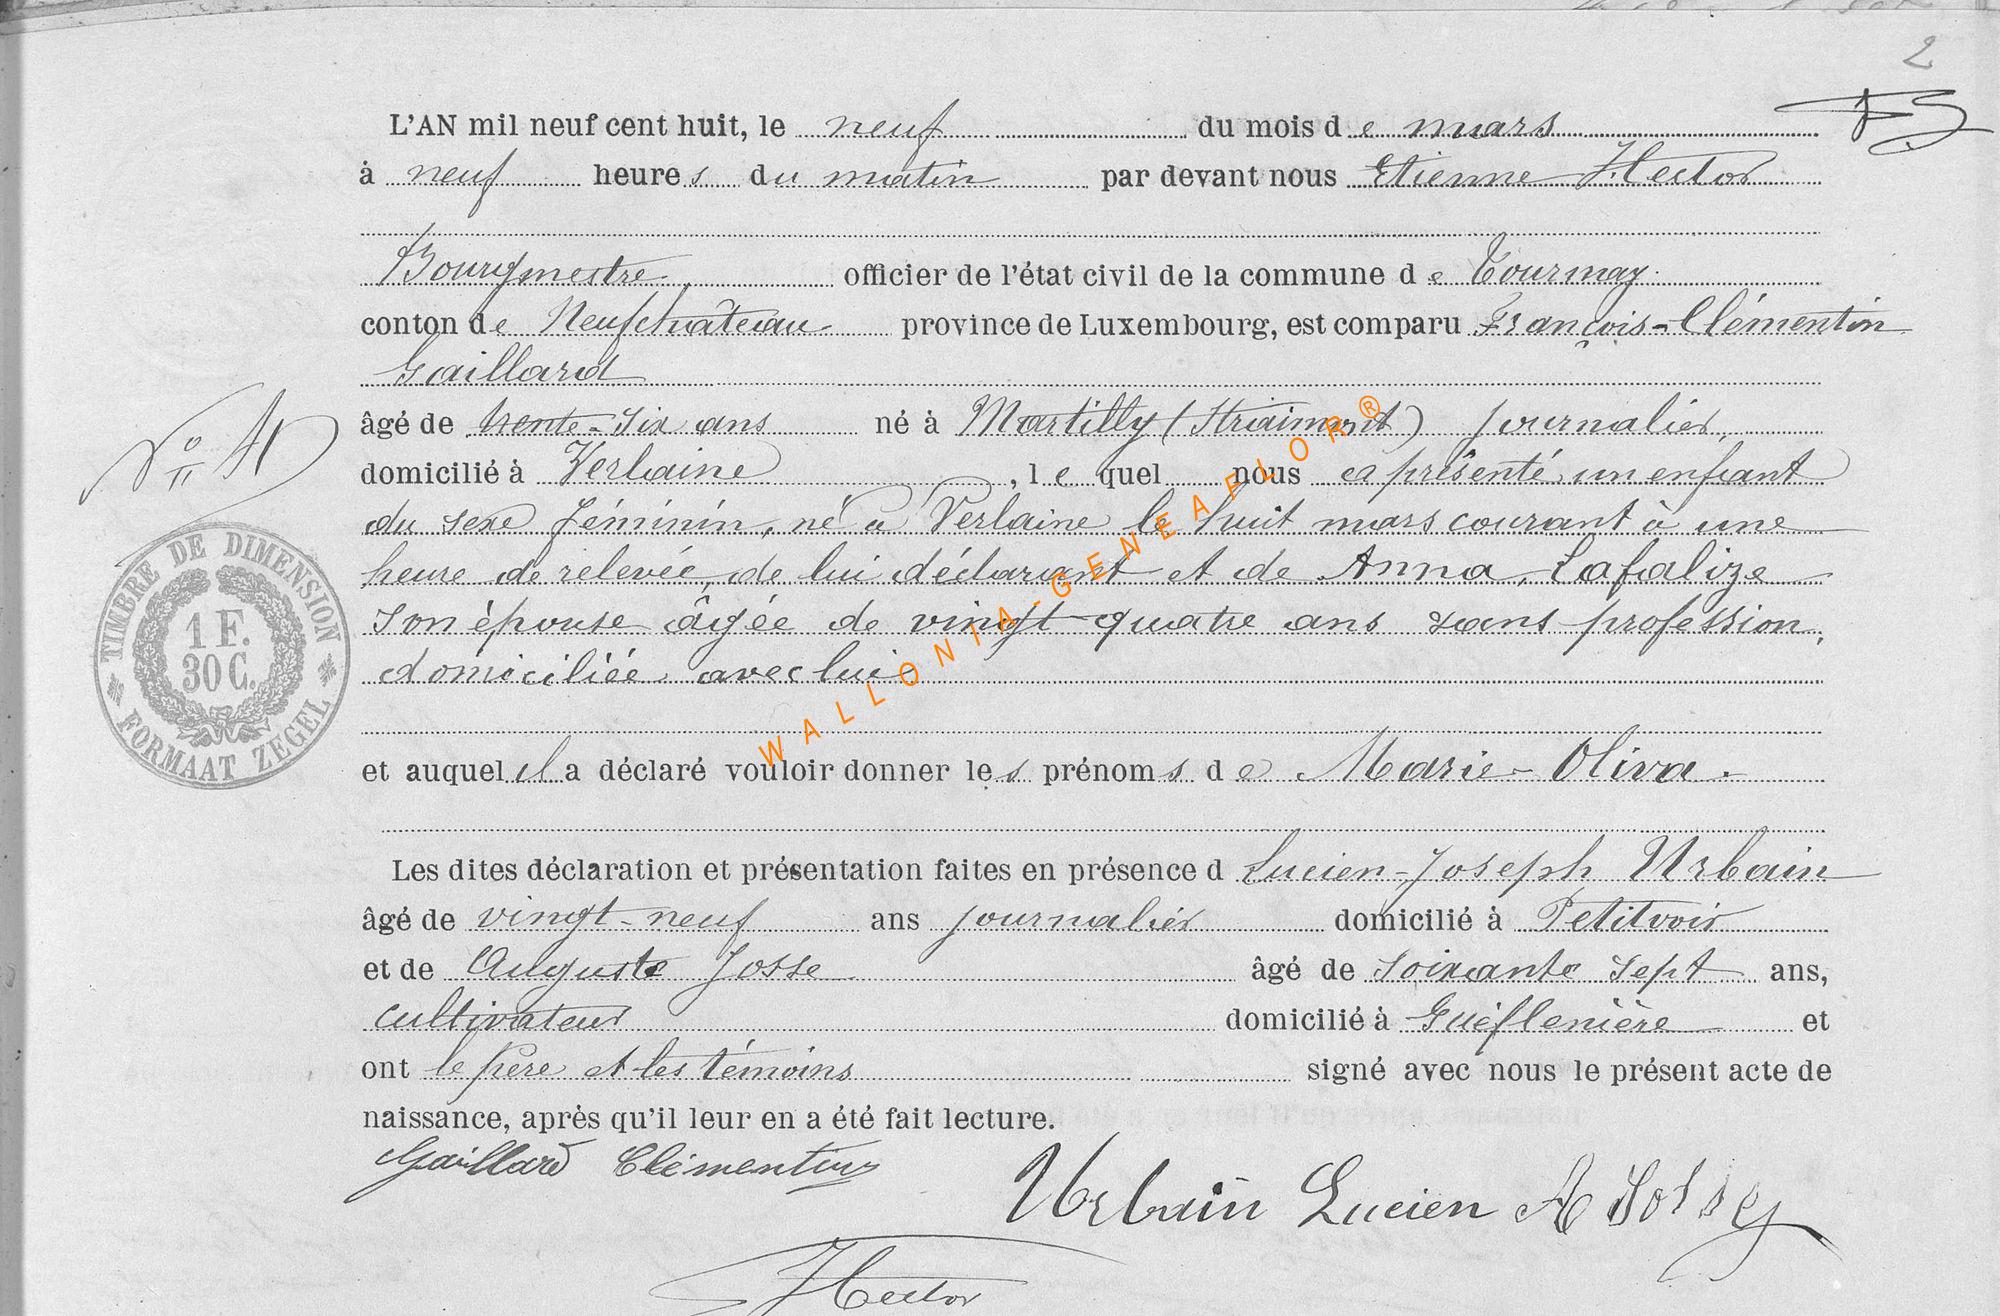 2
L'AN mil neuf cent huit, le neuf du mois de mars
à neuf heures du matin par devant nous Etienne Hector
Bourgmestre, officier de l'état civil de la commune de Tournay
conton de Neufchateau province de Luxembourg, est comparu François-Clémentin
Gaillard
âgé de trente-six ans né à Martilly (Straimont) journalier,
domicilié à Verlaine, lequel nous a présenté un enfant
du sexe féminin, né à Verlaine le huit mars courant à une
heure de relevée, de lui déclarant et de Anna Lafalize
son épouse âgée de vingt-quatre ans sans profession,
domiciliée avec lui
et auquel il a déclaré vouloir donner les prénoms de Marie-Oliva.
Les dites déclaration et présentation faites en présence d Lucien-Joseph Urbain
âgé de vingt-neuf ans journalier domicilié à Petitvoir
et de Auguste Josse âgé de soixante sept ans,
cultivateur domicilié à Gueflenière et
ont le père et les témoins signé avec nous le présent acte de
naissance, après qu'il leur en a été fait lecture.
Gaillard Clémentin
Urbain Lucien A Josse
Hector
No 4
TIMBRE DE DIMENSION
1 F.
30 C.
FORMAAT ZEGEL
WALLONIA-GENEAFLOR®